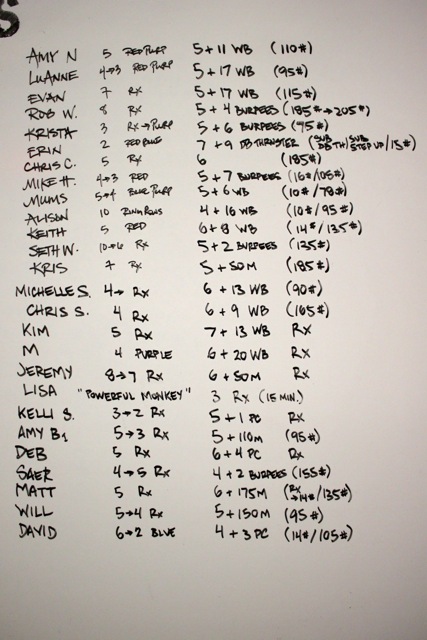 S
AMY N 5 RED PURP 5+11 WB (110#)
LUANNE 4→3 RED PURP 5+17 WB (95#)
EVAN 7 RX 5+17 WB (115#)
ROB W. 8 RX 5+4 BURPEES (185#→205#)
KRISTA 3 RX→PURP 5+6 BURPEES (75#)
ERIN 2 RED BLUE 7+9 DB THRUSTER (SUB DB TH/SUB STEP UP/15#)
CHRIS C. 5 RX 6 (185#)
MIKE H. 4→3 RED 5+7 BURPEES (16#/105#)
MUMS 5→4 BLUE PURP 5+6 WB (10#/78#)
ALISON 10 RING ROWS 4+16 WB (10#/95#)
KEITH 5 RED 6+8 WB (14#/135#)
SETH W. 10→6 RX 5+2 BURPEES (135#)
KRIS 7 RX 5+50M (185#)
MICHELLE S. 4→ RX 6+13 WB (90#)
CHRIS S. 4 RX 6+9 WB (165#)
KIM 5 RX 7+13 WB RX
M 4 PURPLE 6+20 WB RX
JEREMY 8→7 RX 6+50M RX
LISA "POWERFUL MONKEY" 3 RX (15 MIN.)
KELLI S. 3→2 RX 5+1 PC RX
AMY B. 5→3 RX 5+110M (95#)
DEB 5 RX 6+4 PC RX
SAER 4→5 RX 4+2 BURPEES (155#)
MATT 5 RX 6+175M (RX→14#/135#)
WILL 5→4 RX 5+150M (95#)
DAVID 6→2 BLUE 4+3 PC (14#/105#)